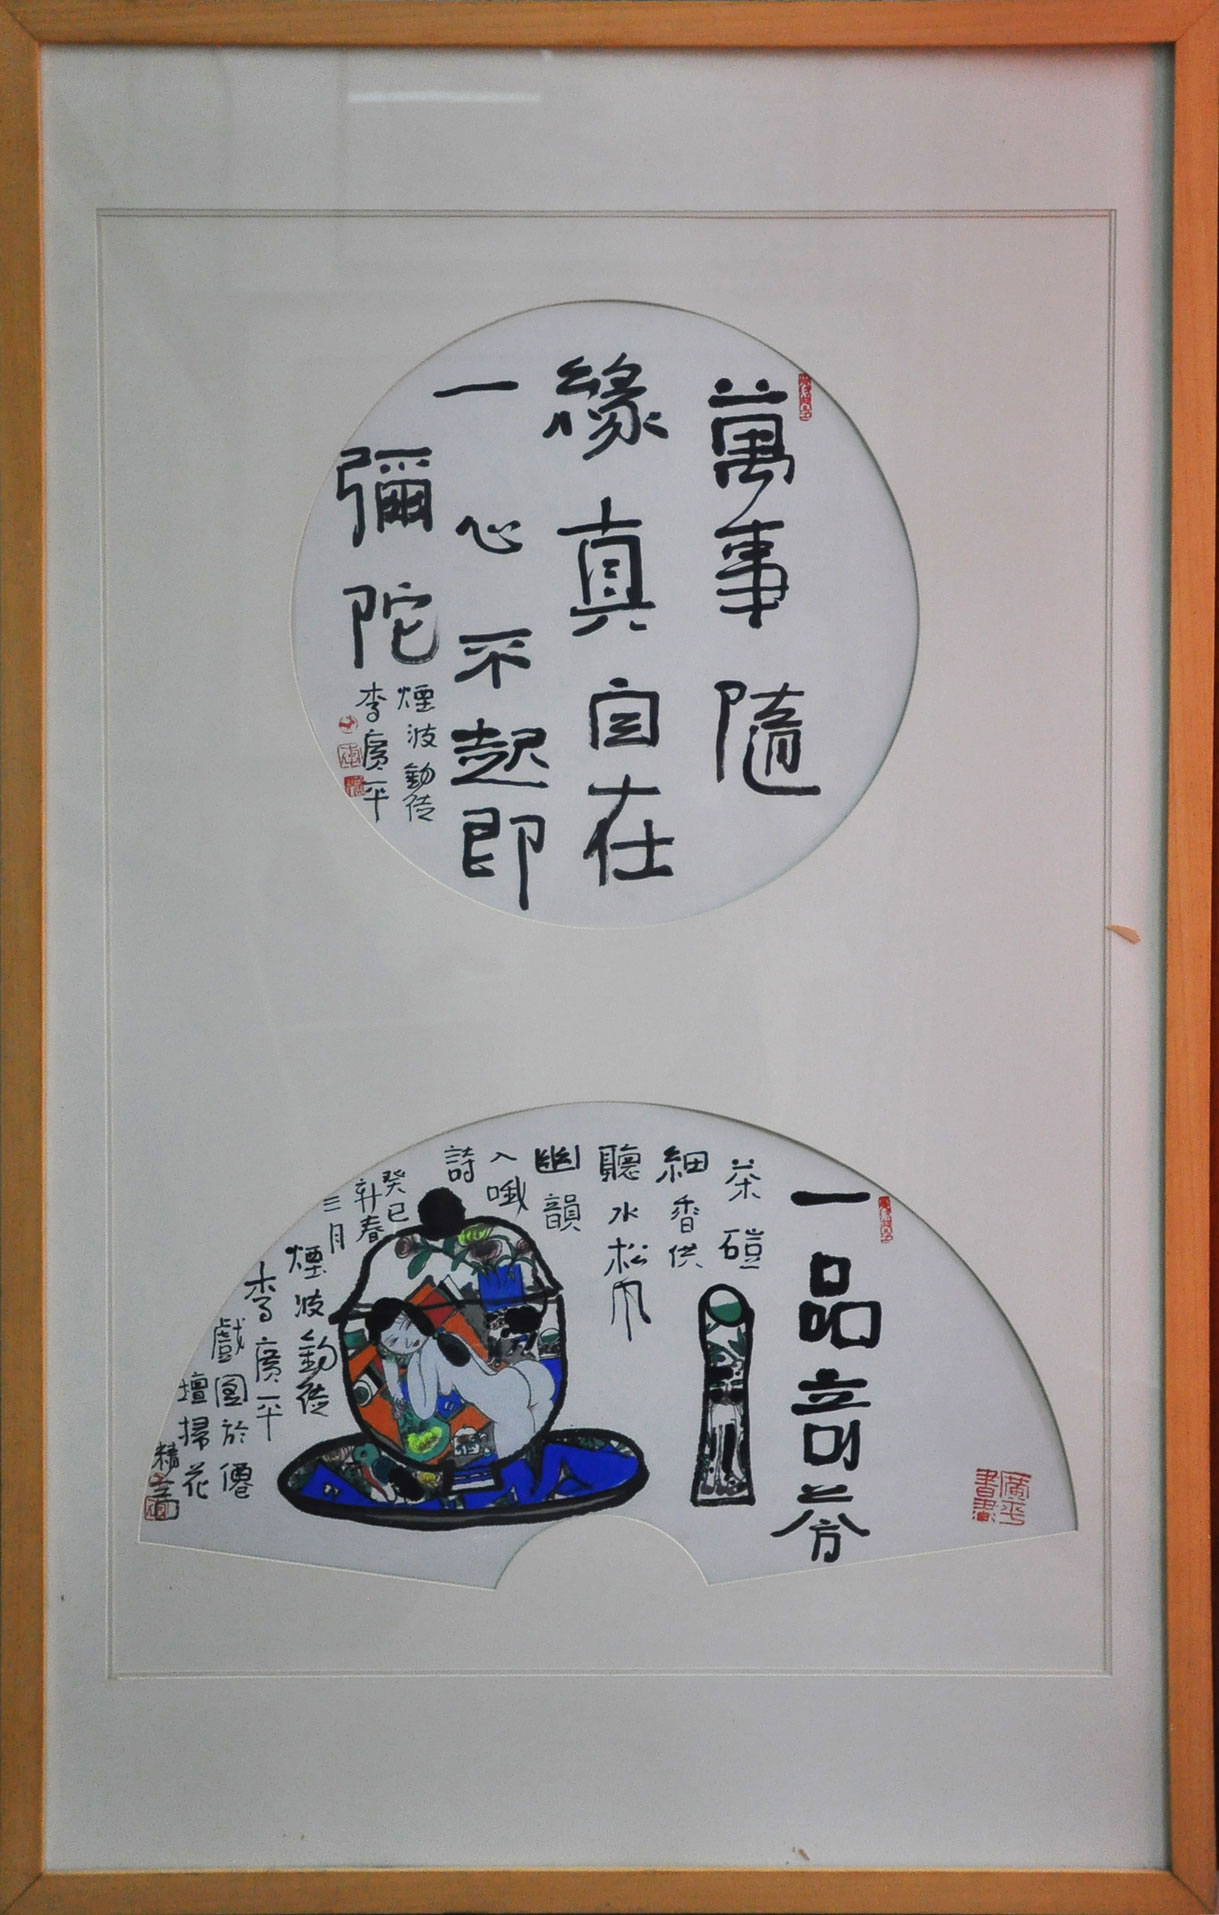 萬事隨
緣真自在
一心不起即
彌陀
煙波釣徒
李廣平
一品奇芬
茶磑
細香供
聽水松風
幽韻
入哦
詩
癸巳
新春
三月
煙波釣徒
李廣平
戲圖於僊
壇掃花
精舍
廣平
書畫